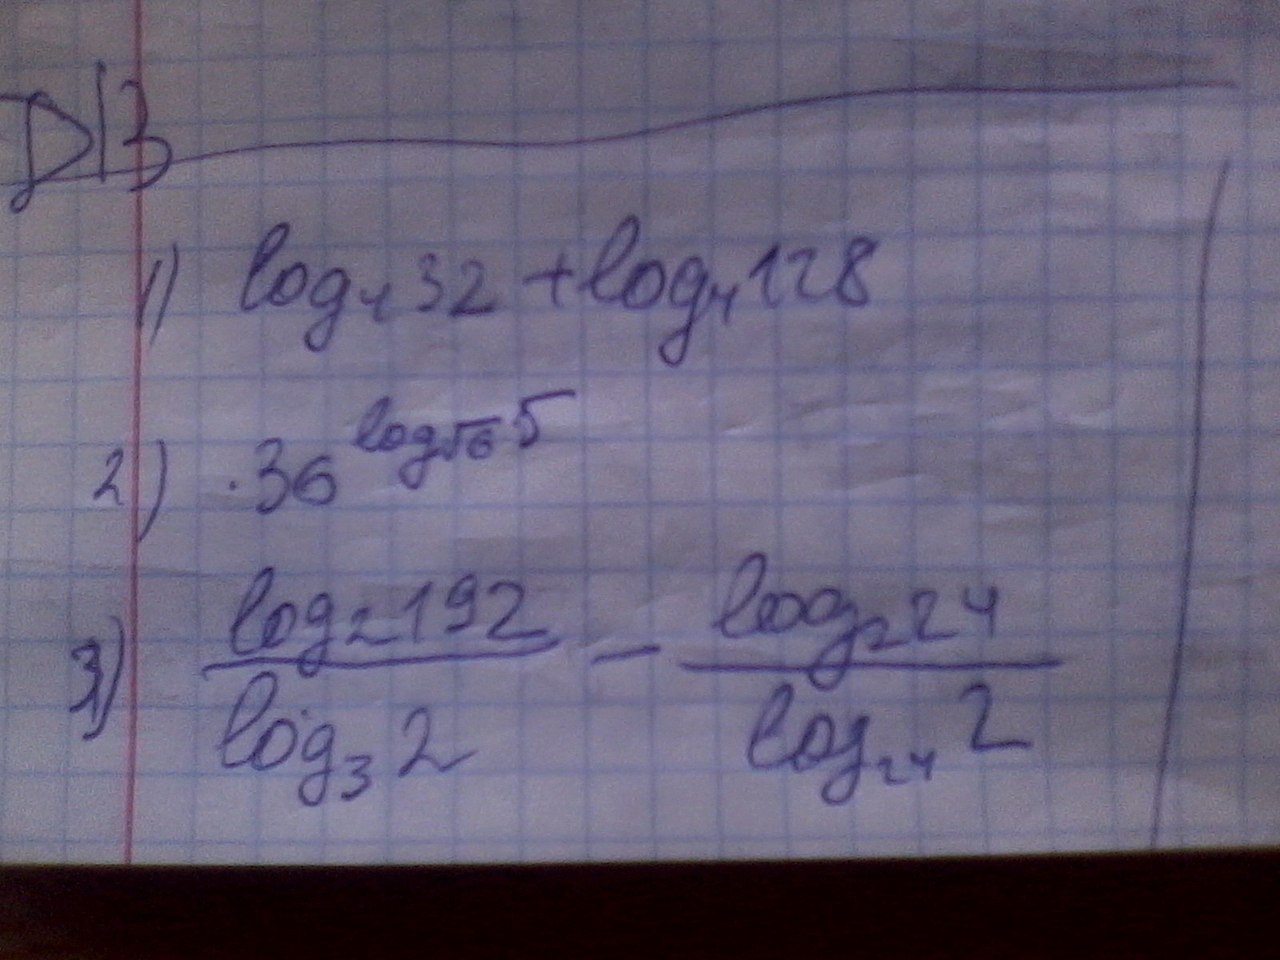 D/З
1) log₄ 32 + log₄ 128
2) . 36^(log_√6 5)
3) (log₂ 192)/(log₃ 2) − (log₂ 24)/(log₂₄ 2)